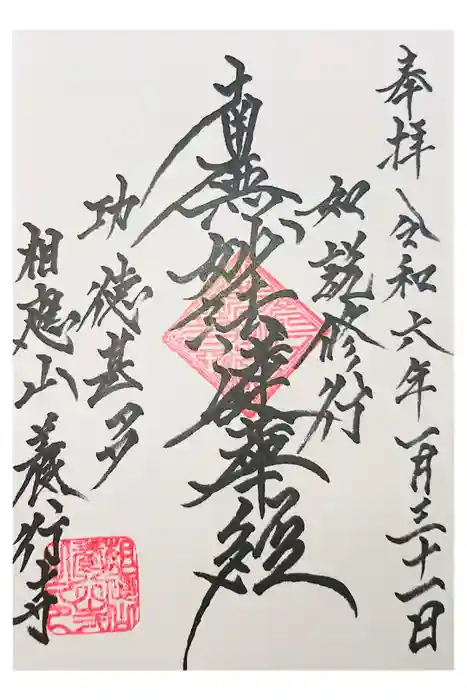 奉拝 令和六年一月三十一日
如説修行
南無妙法蓮華経
功徳甚多
相應山 養行寺